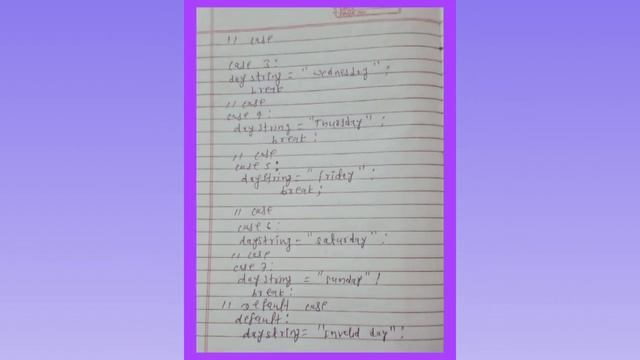 // case
case 3:
daystring = "wednesday";
break
// case
case 4:
daystring = "Thursday";
break:
// case
case 5:
daystring = "friday":
break;
// case
case 6:
daystring = "saturday":
// case
case 7:
daystring = "sunday"/
break:
// Default case
default:
daystring = "invelid day":